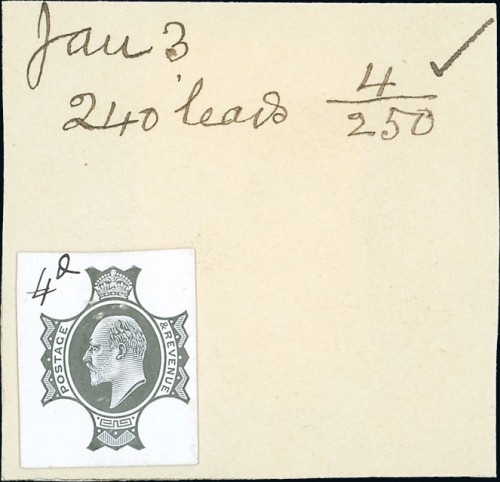 Jan 3
240 leads 4/250
4d
POSTAGE & REVENUE